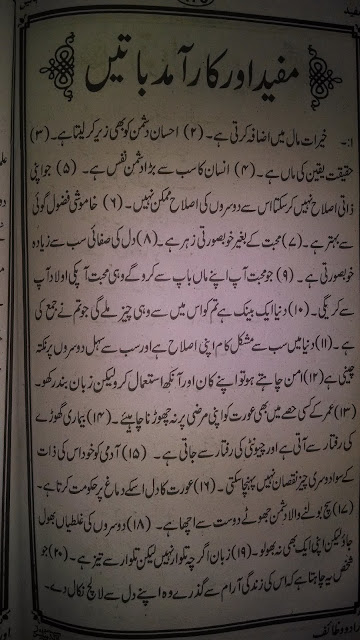 مفید اور کارآمد باتیں
۱:۔ خیرات مال میں اضافہ کرتی ہے۔ (۲) احسان دشمن کو بھی زیر کر لیتا ہے۔ (۳)
حقیقت یقین کی ماں ہے۔ (۴) انسان کا سب سے بڑا دشمن نفس ہے۔ (۵) جو اپنی
ذاتی اصلاح نہیں کر سکتا اس سے دوسروں کی اصلاح ممکن نہیں۔ (۶) خاموشی فضول گوئی
سے بہتر ہے۔ (۷) محبت کے بغیر خوبصورتی زہر ہے۔ (۸) دل کی صفائی سب سے زیادہ
خوبصورتی ہے۔ (۹) جو محبت آپ اپنے ماں باپ سے کرو گے وہی محبت آپکی اولاد آپ
سے کریگی۔ (۱۰) دنیا ایک بینک ہے تم کو اس میں سے وہی چیز ملے گی جو تم نے جمع کی
ہے۔ (۱۱) دنیا میں سب سے مشکل کام اپنی اصلاح ہے اور سب سے سہل دوسروں پر نکتہ
چینی ہے (۱۲) امن چاہتے ہو تو اپنے کان اور آنکھ استعمال کرو لیکن زبان بند رکھو۔
(۱۳) عمر کے کسی حصے میں بھی عورت کو اپنی مرضی پر نہ چھوڑنا چاہیئے۔ (۱۴) بیماری گھوڑے
کی رفتار سے آتی ہے اور چیونٹی کی رفتار سے جاتی ہے۔ (۱۵) آدمی کو خود اس کی ذات
کے سوا دوسری چیز نقصان نہیں پہنچا سکتی۔ (۱۶) عورت کا دل اسکے دماغ پر حکومت کرتا ہے۔
(۱۷) سچ بولنے والا دشمن جھوٹے دوست سے اچھا ہے۔ (۱۸) دوسروں کی غلطیاں بھول
جاؤ لیکن اپنی ایک بھی نہ بھولو۔ (۱۹) زبان اگرچہ تلوار نہیں لیکن تلوار سے تیز ہے۔ (۲۰) جو
شخص یہ چاہتا ہے کہ اس کی زندگی آرام سے گذرے وہ اپنے دل سے لالچ نکال دے۔